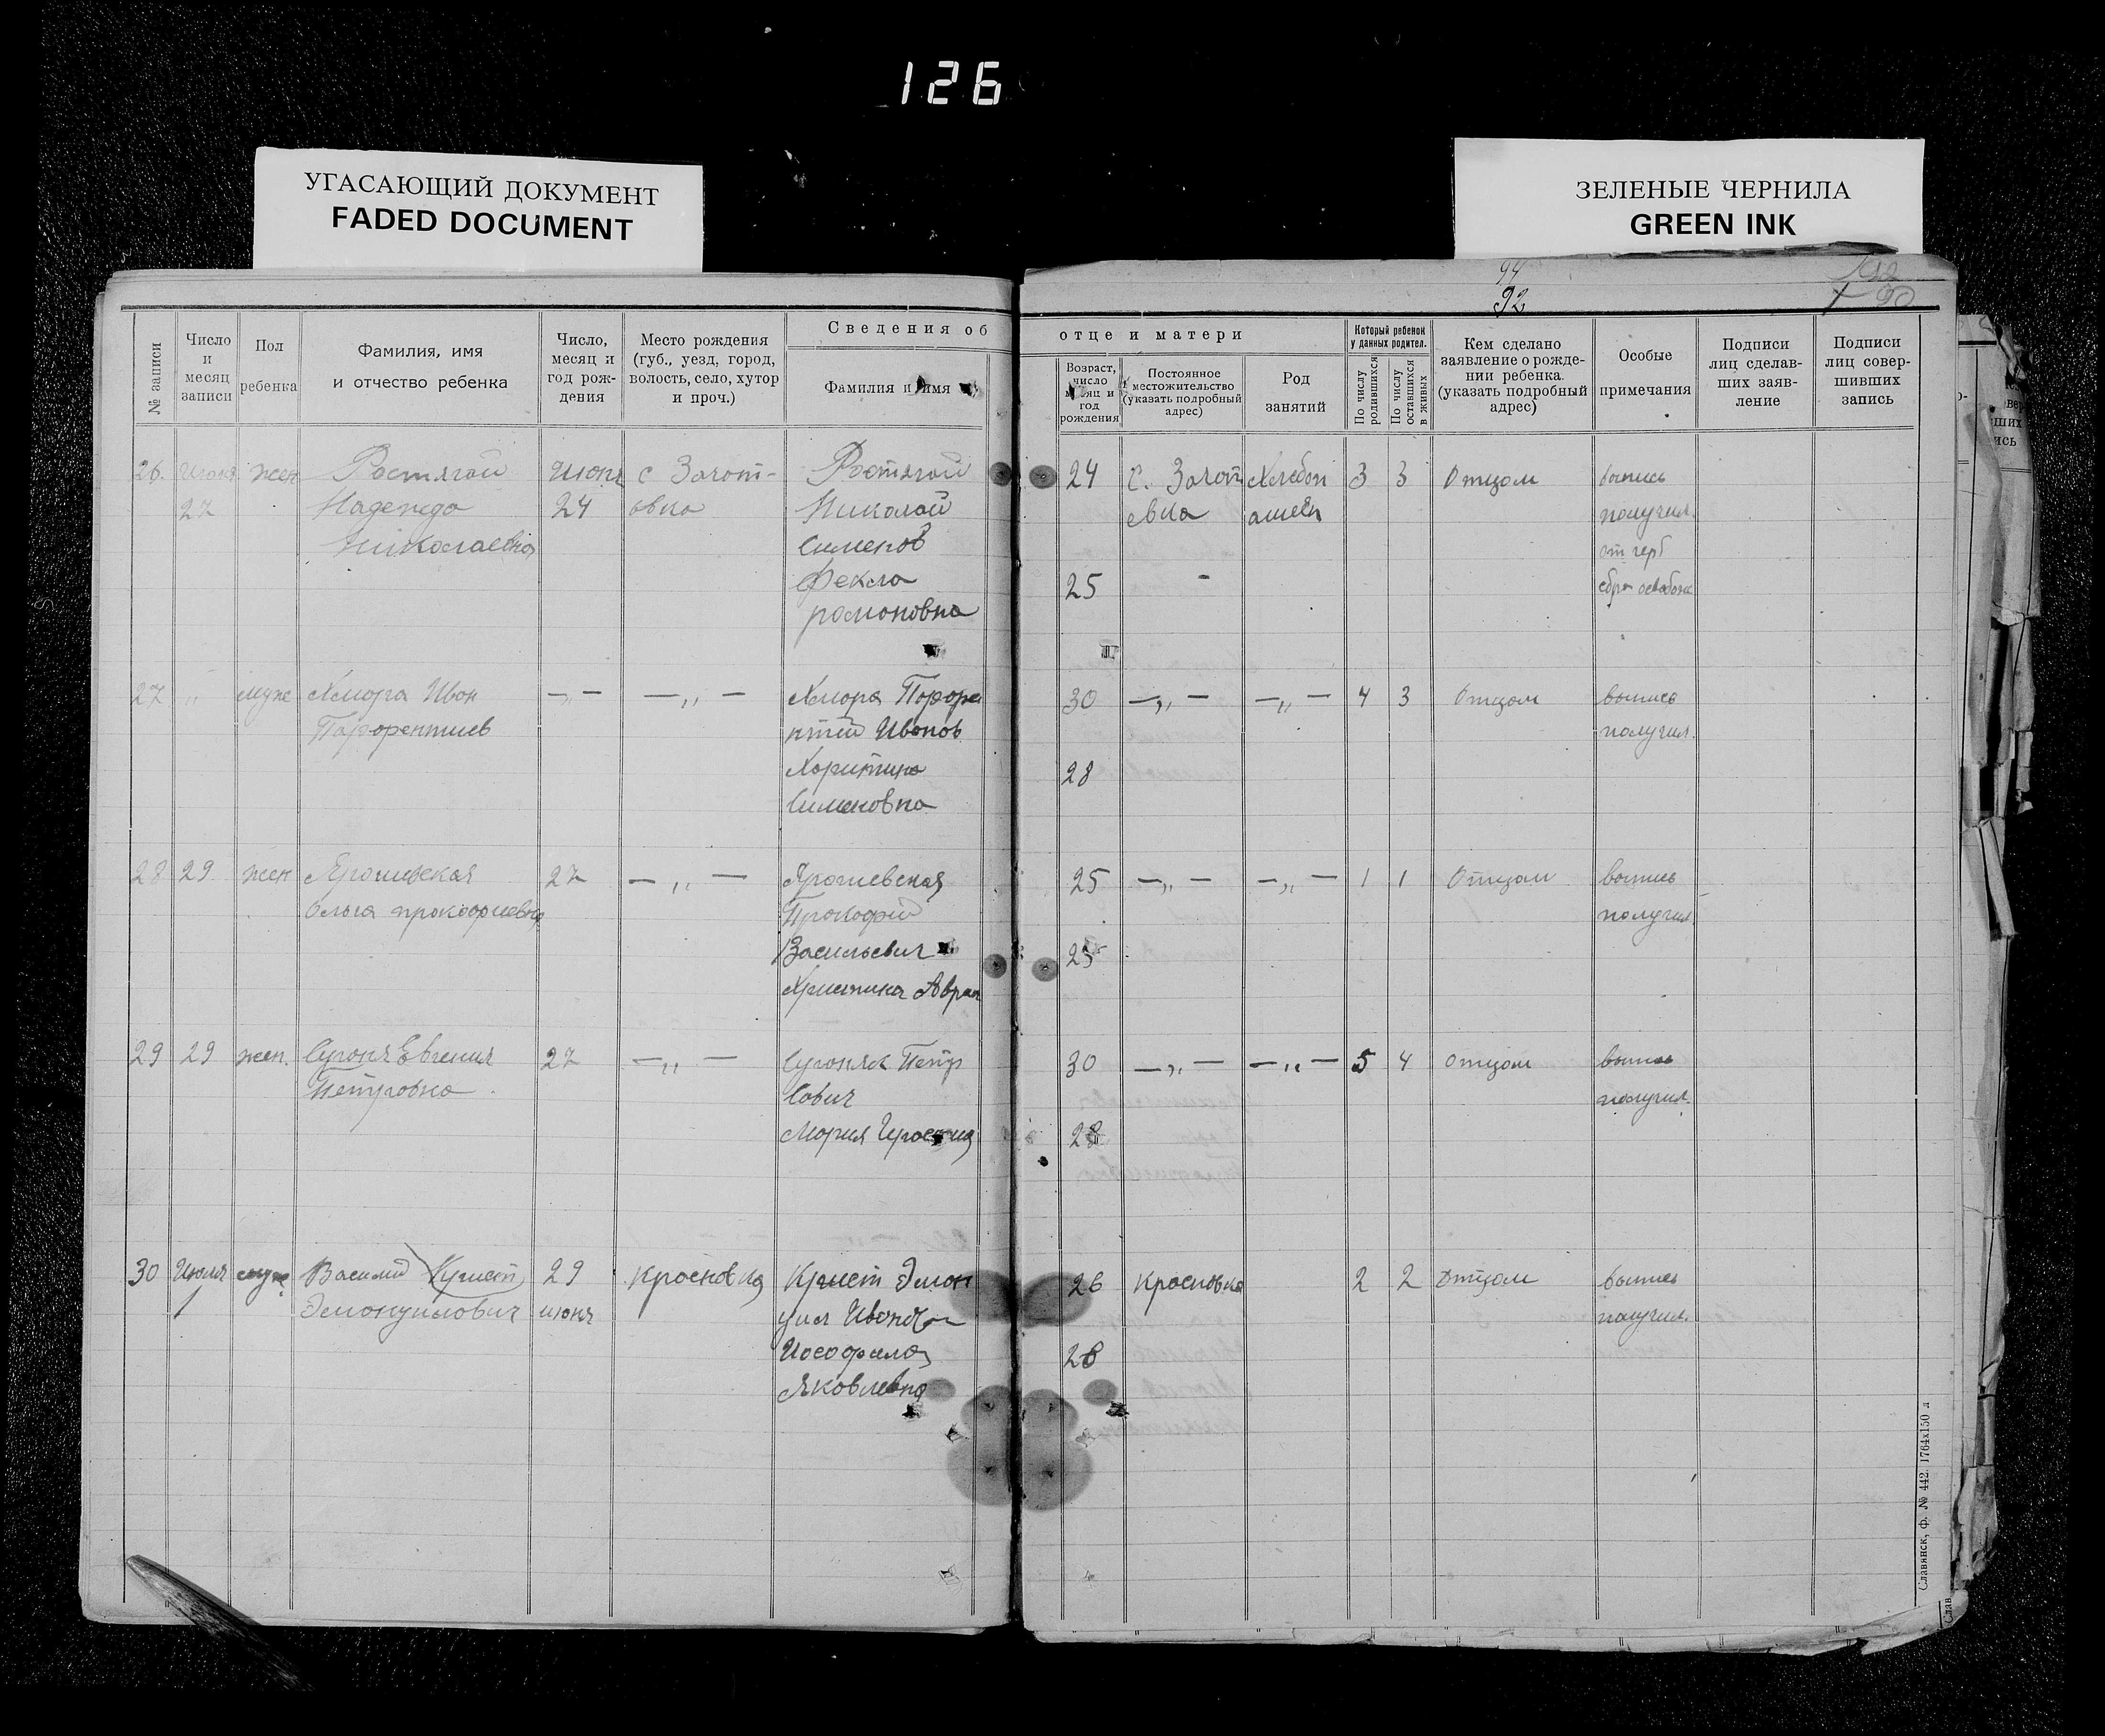 126
УГАСАЮЩИЙ ДОКУМЕНТ
FADED DOCUMENT
ЗЕЛЕНЫЕ ЧЕРНИЛА
GREEN INK
94
92
90
№ записи
Число и месяц записи
Пол ребенка
Фамилия, имя и отчество ребенка
Число, месяц и год рождения
Место рождения (губ., уезд, город, волость, село, хутор и проч.)
Сведения об отце и матери
Фамилия и имя
Возраст, число месяц и год рождения
Постоянное местожительство (указать подробный адрес)
Род занятий
Который ребенок у данных родител.
По числу родившихся
По числу оставшихся в живых
Кем сделано заявление о рождении ребенка. (указать подробный адрес)
Особые примечания
Подписи лиц сделавших заявление
Подписи лиц совершивших запись
26. Июня жен Ростягай Июня с Золот- Ростягай 24 С. Золот Хлебоп 3 3 Отцом выпись
27 Надежда 24 овка Николай евка ашец получил.
Николаевна Сименов от герб
Фекла 25 -
ромоновна
27 " муж Хмора Ивон — „ — — „ — Хмора Порфоре 30 — „ — — „ — 4 3 Отцом выпись
Порфорентиев нтий Ивонов получил.
Хоритино 28
Сименовна
28 29 жен 27 — „ — 25 — „ — — „ — 1 1 Отцом выпись
Ольга прокофиевна Прокофий получил
Васильевич 25
Христина Аврам
29 29 жен. Евгения 27 — „ — Петр 30 — „ — — „ — 5 4 отцом выпись
Петровна Савич получил.
Мория 28
30 Июля муж Василий Кригст 29 Красновка Кригст Эмон 26 Красновка 2 2 Отцом выпись
1 Эмонуилович июня уил Ивонов получил.
Иософила 26
Яковлевна
Славянск, ф. № 442. 1764х150 л